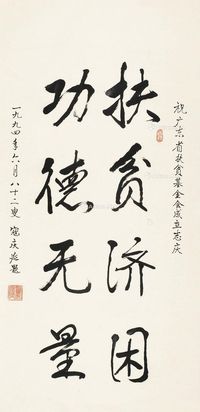 祝广东省扶贫基金会成立志庆
扶贫济困
功德无量
一九九四年六月八十二叟寇庆延题